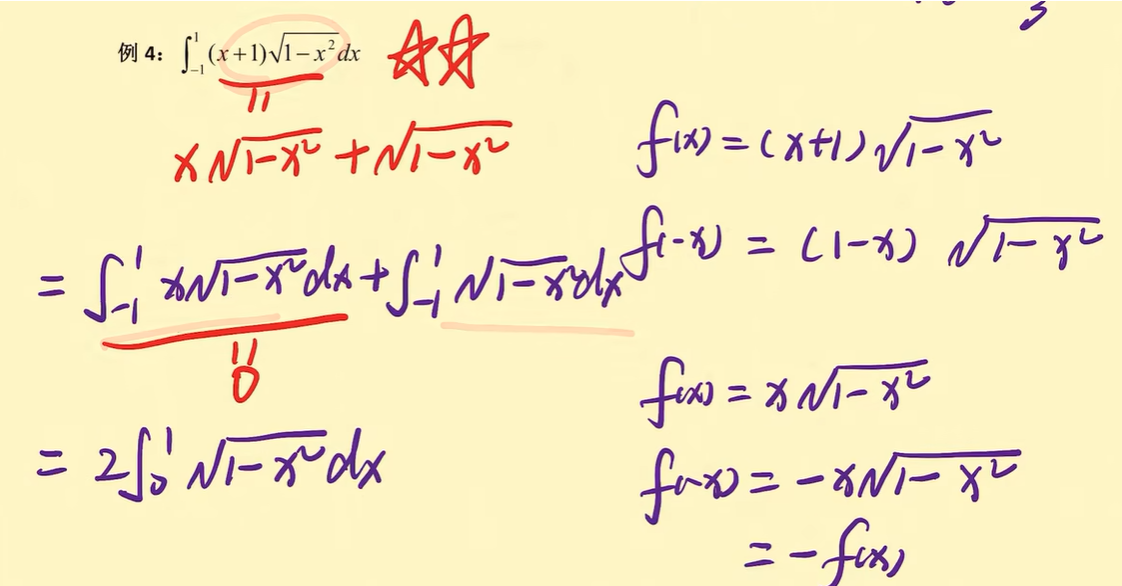 例 4： ∫_{-1}^{1} (x+1)√(1−x²) dx
‖
x√(1−x²) + √(1−x²)
= ∫_{-1}^{1} x√(1−x²) dx + ∫_{-1}^{1} √(1−x²) dx
‖
0
= 2∫_{0}^{1} √(1−x²) dx
f(x) = (x+1)√(1−x²)
f(-x) = (1-x) √(1−x²)
f(x) = x√(1−x²)
f(-x) = -x√(1−x²)
= -f(x)